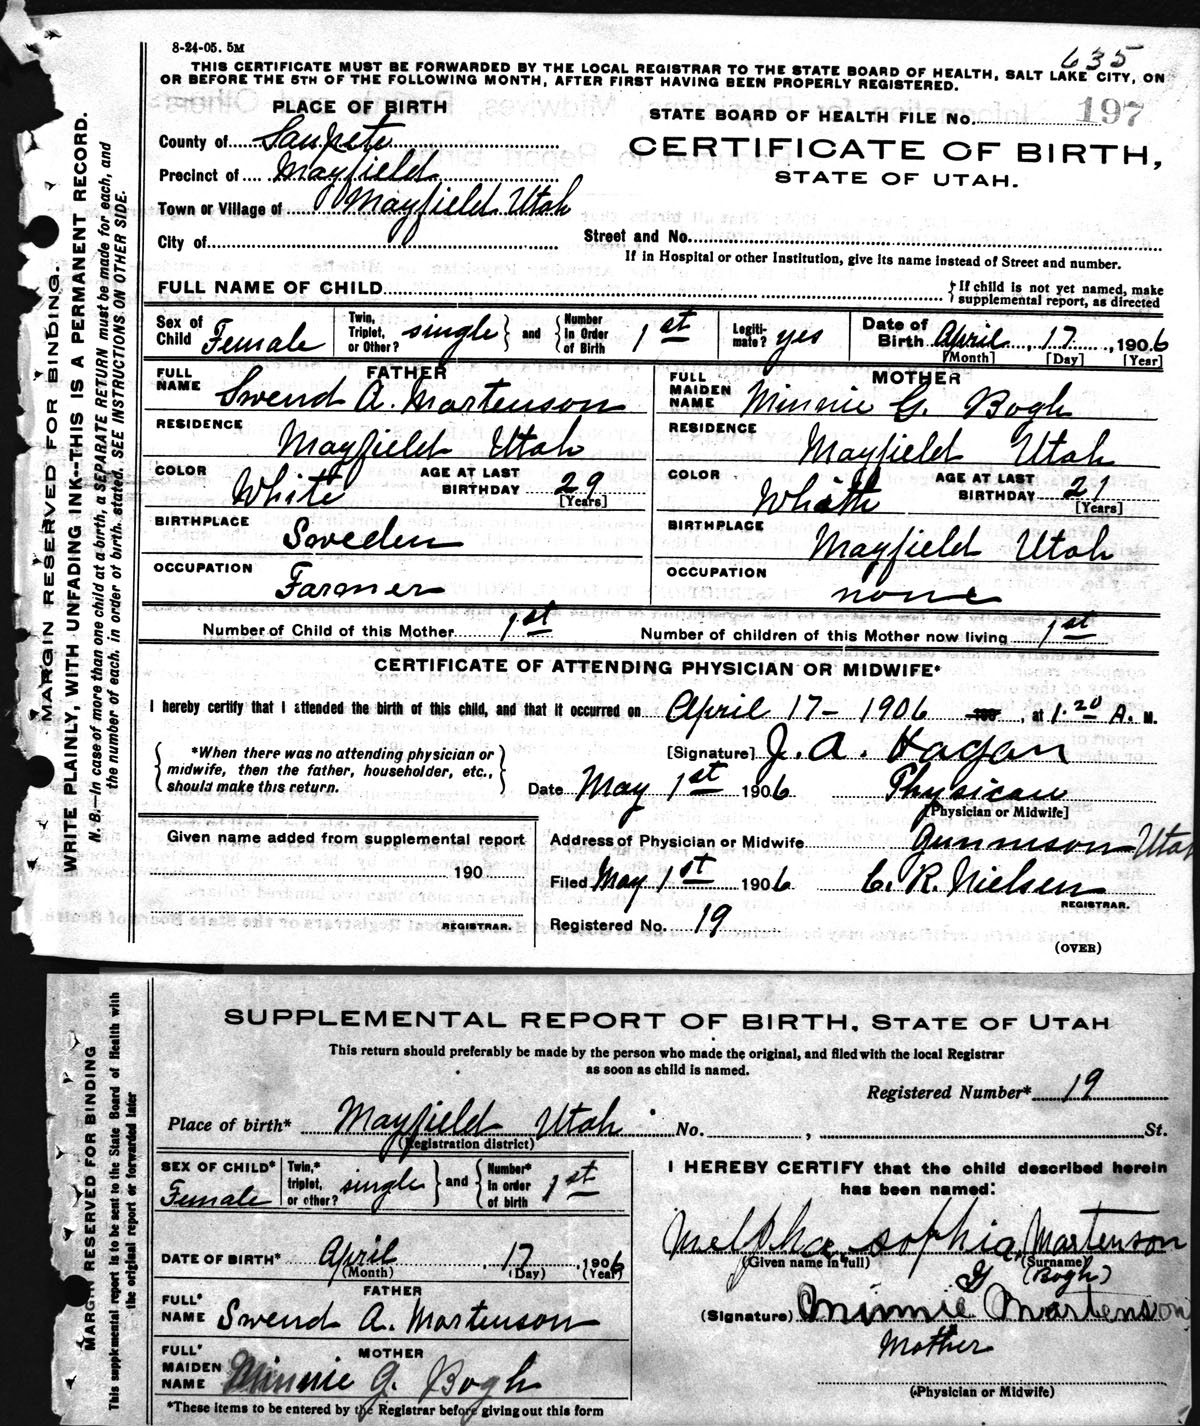 8-24-05. 5M
635
THIS CERTIFICATE MUST BE FORWARDED BY THE LOCAL REGISTRAR TO THE STATE BOARD OF HEALTH, SALT LAKE CITY, ON
OR BEFORE THE 5TH OF THE FOLLOWING MONTH, AFTER FIRST HAVING BEEN PROPERLY REGISTERED.
PLACE OF BIRTH
STATE BOARD OF HEALTH FILE No. 197
County of Sanpete
CERTIFICATE OF BIRTH,
Precinct of Mayfield
STATE OF UTAH.
Town or Village of Mayfield Utah
City of
Street and No.
If in Hospital or other Institution, give its name instead of Street and number.
FULL NAME OF CHILD
{If child is not yet named, make
supplemental report, as directed
Sex of Child Female
Twin, Triplet, or Other? single} and {Number in Order of Birth 1st
Legitimate? yes
Date of Birth April 17, 1906
[Month] [Day] [Year]
FATHER
FULL NAME Swend A. Martenson
MOTHER
FULL MAIDEN NAME Minnie G. Bogh
RESIDENCE Mayfield Utah
RESIDENCE Mayfield Utah
COLOR White
AGE AT LAST BIRTHDAY 29
[Years]
COLOR Whith
AGE AT LAST BIRTHDAY 21
[Years]
BIRTHPLACE Sweden
BIRTHPLACE Mayfield Utah
OCCUPATION Farmer
OCCUPATION none
Number of Child of this Mother 1st
Number of children of this Mother now living 1st
CERTIFICATE OF ATTENDING PHYSICIAN OR MIDWIFE*
I hereby certify that I attended the birth of this child, and that it occurred on April 17- 1906, at 1.20 A. M.
{*When there was no attending physician or
midwife, then the father, householder, etc.,
should make this return.}
[Signature] J. A. Hagan
Date May 1st 1906 Physican
[Physician or Midwife]
Given name added from supplemental report
190
REGISTRAR.
Address of Physician or Midwife Gunnison Utah
Filed May 1st 1906 C. R. Nielsen
REGISTRAR.
Registered No. 19
(OVER)
MARGIN RESERVED FOR BINDING.
WRITE PLAINLY, WITH UNFADING INK--THIS IS A PERMANENT RECORD.
N. B.—In case of more than one child at a birth, a SEPARATE RETURN must be made for each, and
the number of each, in order of birth, stated. SEE INSTRUCTIONS ON OTHER SIDE.
SUPPLEMENTAL REPORT OF BIRTH, STATE OF UTAH
This return should preferably be made by the person who made the original, and filed with the local Registrar
as soon as child is named.
Registered Number* 19
Place of birth* Mayfield Utah No. , St.
(Registration district)
SEX OF CHILD* Female
Twin,* triplet, or other? single} and {Number* in order of birth 1st
DATE OF BIRTH* April, 17, 1906
(Month) (Day) (Year)
FATHER
FULL* NAME Swend A. Martenson
MOTHER
FULL* MAIDEN NAME Minnie G. Bogh
*These items to be entered by the Registrar before giving out this form
I HEREBY CERTIFY that the child described herein
has been named:
Melpha sophia Martenson
(Given name in full) (Surname)
G (Bogh)
(Signature) Minnie Martenson
Mother
(Physician or Midwife)
MARGIN RESERVED FOR BINDING
This supplemental report is to be sent to the State Board of Health with
the original report or forwarded later